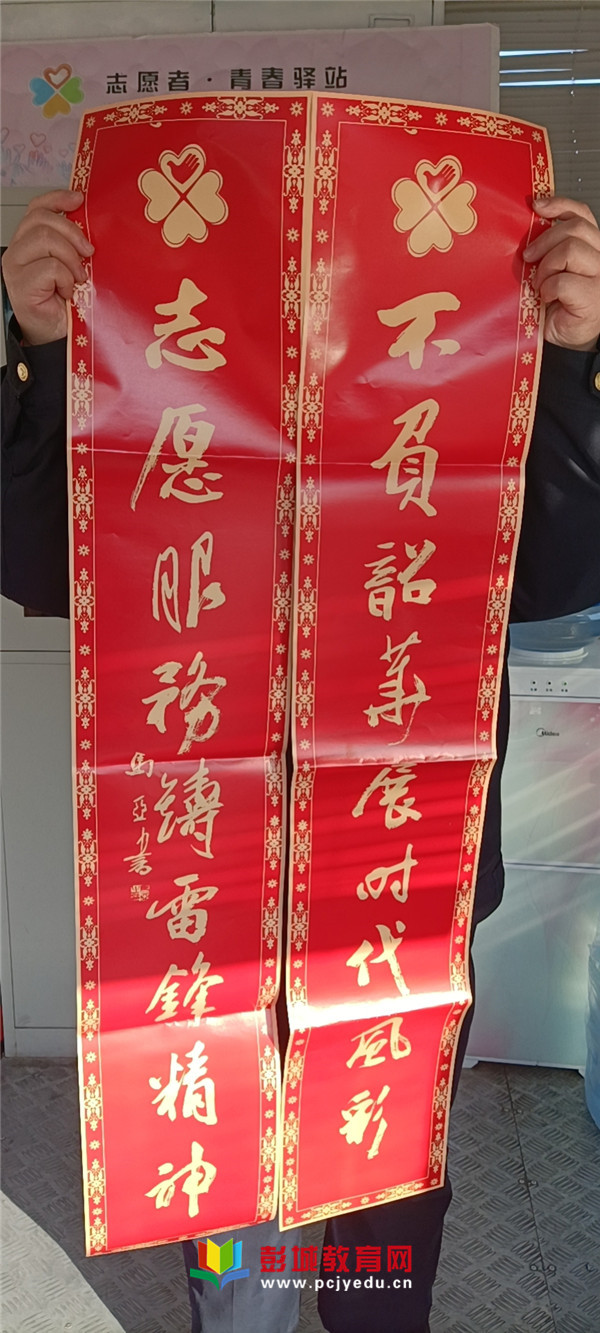 志愿者·青春驿站
不负韶华展时代风彩
志愿服務鑄雷鋒精神
馬亞书
Midea
彭城教育网
www.pcjyedu.cn